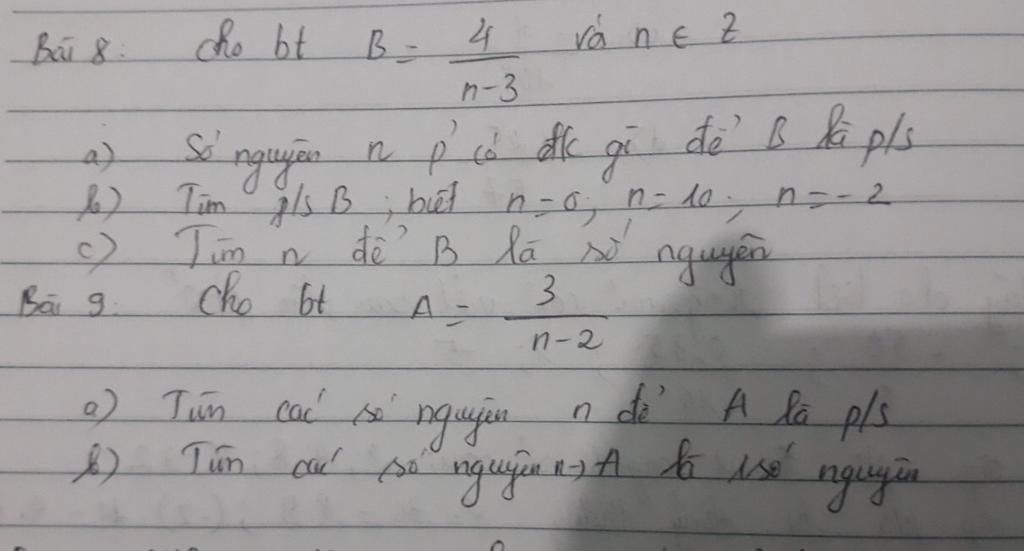 Bài 8: Cho bt B = 4/(n-3) và n ∈ Z
a) Số nguyên n p' có đk gì để B là p/s
b) Tìm p/s B; biết n=0; n=10; n=-2
c) Tìm n để B là số nguyên
Bài 9: Cho bt A = 3/(n-2)
a) Tìm các số nguyên n để A là p/s
b) Tìm các số nguyên n → A là 1 số nguyên